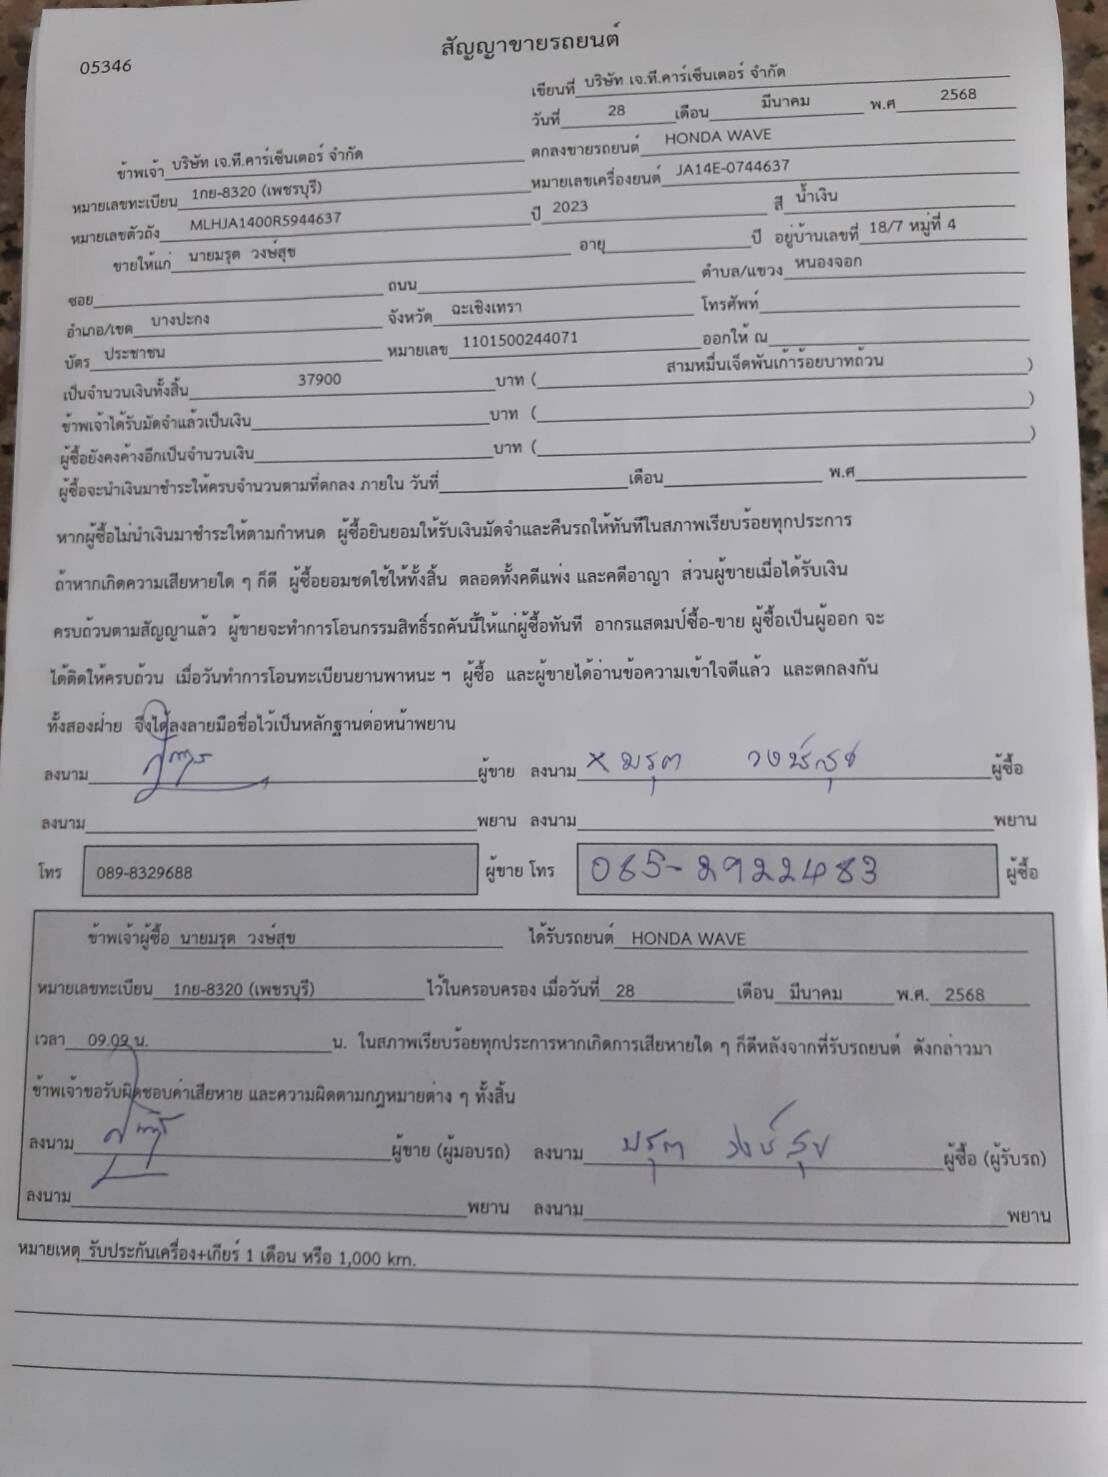 สัญญาขายรถยนต์
05346
เขียนที่ บริษัท เจ.ที.คาร์เซ็นเตอร์ จำกัด
วันที่ 28 เดือน มีนาคม พ.ศ 2568
ข้าพเจ้า บริษัท เจ.ที.คาร์เซ็นเตอร์ จำกัด ตกลงขายรถยนต์ HONDA WAVE
หมายเลขทะเบียน 1กย-8320 (เพชรบุรี) หมายเลขเครื่องยนต์ JA14E-0744637
หมายเลขตัวถัง MLHJA1400R5944637 ปี 2023 สี น้ำเงิน
ขายให้แก่ นายมรุต วงษ์สุข อายุ ปี อยู่บ้านเลขที่ 18/7 หมู่ที่ 4
ซอย ถนน ตำบล/แขวง หนองจอก
อำเภอ/เขต บางปะกง จังหวัด ฉะเชิงเทรา โทรศัพท์
บัตร ประชาชน หมายเลข 1101500244071 ออกให้ ณ
เป็นจำนวนเงินทั้งสิ้น 37900 บาท ( สามหมื่นเจ็ดพันเก้าร้อยบาทถ้วน )
ข้าพเจ้าได้รับมัดจำแล้วเป็นเงิน บาท ( )
ผู้ซื้อยังคงค้างอีกเป็นจำนวนเงิน บาท ( )
ผู้ซื้อจะนำเงินมาชำระให้ครบจำนวนตามที่ตกลง ภายใน วันที่ เดือน พ.ศ
หากผู้ซื้อไม่นำเงินมาชำระให้ตามกำหนด ผู้ซื้อยินยอมให้รับเงินมัดจำและคืนรถให้ทันทีในสภาพเรียบร้อยทุกประการ
ถ้าหากเกิดความเสียหายใด ๆ ก็ดี ผู้ซื้อยอมชดใช้ให้ทั้งสิ้น ตลอดทั้งคดีแพ่ง และคดีอาญา ส่วนผู้ขายเมื่อได้รับเงิน
ครบถ้วนตามสัญญาแล้ว ผู้ขายจะทำการโอนกรรมสิทธิ์รถคันนี้ให้แก่ผู้ซื้อทันที อากรแสตมป์ซื้อ-ขาย ผู้ซื้อเป็นผู้ออก จะ
ได้ติดให้ครบถ้วน เมื่อวันทำการโอนทะเบียนยานพาหนะ ฯ ผู้ซื้อ และผู้ขายได้อ่านข้อความเข้าใจดีแล้ว และตกลงกัน
ทั้งสองฝ่าย จึงได้ลงลายมือชื่อไว้เป็นหลักฐานต่อหน้าพยาน
ลงนาม ผู้ขาย ลงนาม x มรุต วงษ์สุข ผู้ซื้อ
ลงนาม พยาน ลงนาม พยาน
โทร 089-8329688 ผู้ขาย โทร 085-2922483 ผู้ซื้อ
ข้าพเจ้าผู้ซื้อ นายมรุต วงษ์สุข ได้รับรถยนต์ HONDA WAVE
หมายเลขทะเบียน 1กย-8320 (เพชรบุรี) ไว้ในครอบครอง เมื่อวันที่ 28 เดือน มีนาคม พ.ศ. 2568
เวลา 09.09 น. น. ในสภาพเรียบร้อยทุกประการหากเกิดการเสียหายใด ๆ ก็ดีหลังจากที่รับรถยนต์ ดังกล่าวมา
ข้าพเจ้าขอรับผิดชอบค่าเสียหาย และความผิดตามกฎหมายต่าง ๆ ทั้งสิ้น
ลงนาม ผู้ขาย (ผู้มอบรถ) ลงนาม มรุต วงษ์สุข ผู้ซื้อ (ผู้รับรถ)
ลงนาม พยาน ลงนาม พยาน
หมายเหตุ รับประกันเครื่อง+เกียร์ 1 เดือน หรือ 1,000 km.